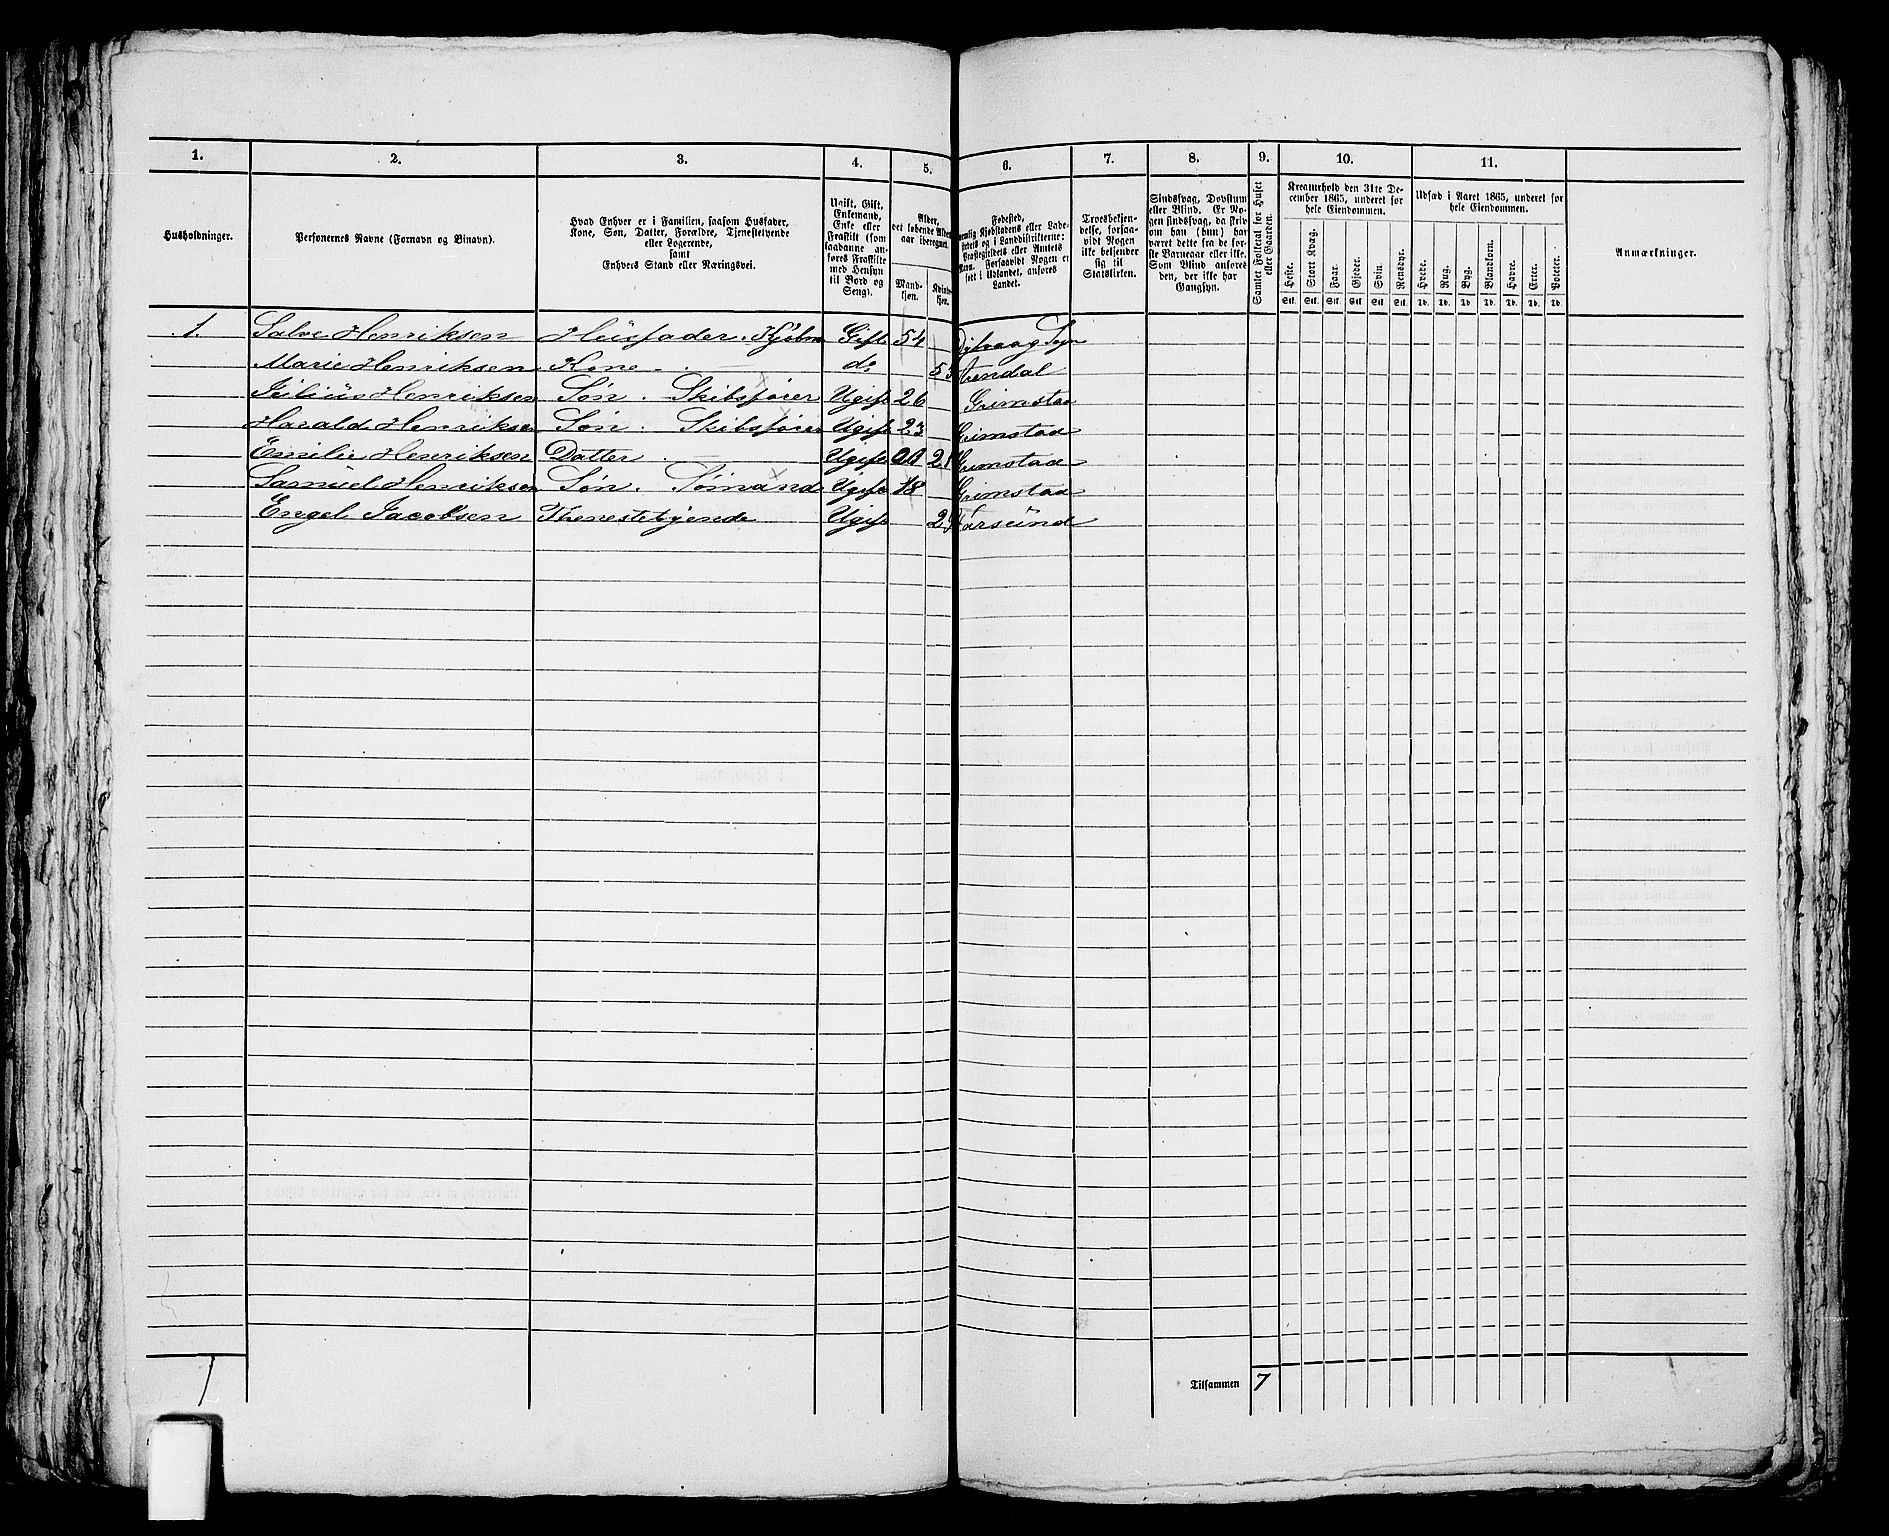 1. 2. 3. 4. 5. 6. 7. 8. 9. 10. 11.
Husholdninger.
Personernes Navne (Fornavn og Binavn).
Hvad Enhver er i Familien, saasom Husfader,
Kone, Søn, Datter, Forældre, Tjenestetyende
eller Logerende,
samt
Enhvers Stand eller Næringsvei.
Ugift, Gift,
Enkemand,
Enke eller
Fraskilt (som
saadanne an-
føres Fraskilte
med Hensyn
til Bord og
Seng).
Alder,
det løbende Alders-
aar iberegnet.
Mand-
kjøn.
Kvinde-
kjøn.
Fødested,
nemlig Kjøbstadens eller Lade-
stedets og i Landdistrikterne:
Præstegjeldets eller Amtets
Navn. Forsaavidt Nogen er
født i Udlandet, anføres
Landet.
Troesbekjen-
delse, forsaa-
vidt Nogen
ikke bekjender
sig til
Statskirken.
Sindssvag, Døvstum
eller Blind. Er No-
gen sindssvag, da skriv
om han (hun) har
været dette fra de før-
ste Barneaar eller ikke.
Som Blind anføres
den, der ikke har
Gangsyn.
Samlet Folketal for Huset
eller Gaarden.
Kreaturhold den 31te De-
cember 1865, underet for
hele Eiendommen.
Heste. Stort Kvæg. Faar. Gjeder. Svin. Rensdyr.
Stk. Stk. Stk. Stk. Stk. Stk.
Udsæd i Aaret 1865, underet for
hele Eiendommen.
Hvede. Rug. Byg. Blandkorn. Havre. Erter. Poteter.
Td. Td. Td. Td. Td. Td. Td.
Anmærkninger.
1. Salve Henriksen Husfader. Gift 54 Dybvaag Sogn
Marie Henriksen Kone do Arendal
Julius Henriksen Søn. Skibsfører Ugift 26 Grimstad
Harald Henriksen Søn. Skibsfører Ugift 23 Grimstad
Emilie Henriksen Datter Ugift 21 Grimstad
Samuel Henriksen Søn. Sømand Ugift 18 Grimstad
Engel Jacobsen Thenestetyende Ugift Farsund
1 Tilsammen 7